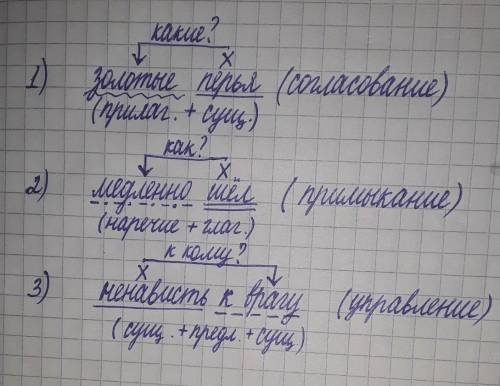 какие?
х
1) золотые перья (согласование)
(прилаг. + сущ.)
как?
х
2) медленно шёл (примыкание)
(наречие + глаг.)
к кому?
х
3) ненависть к врагу (управление)
(сущ. + предл. + сущ.)